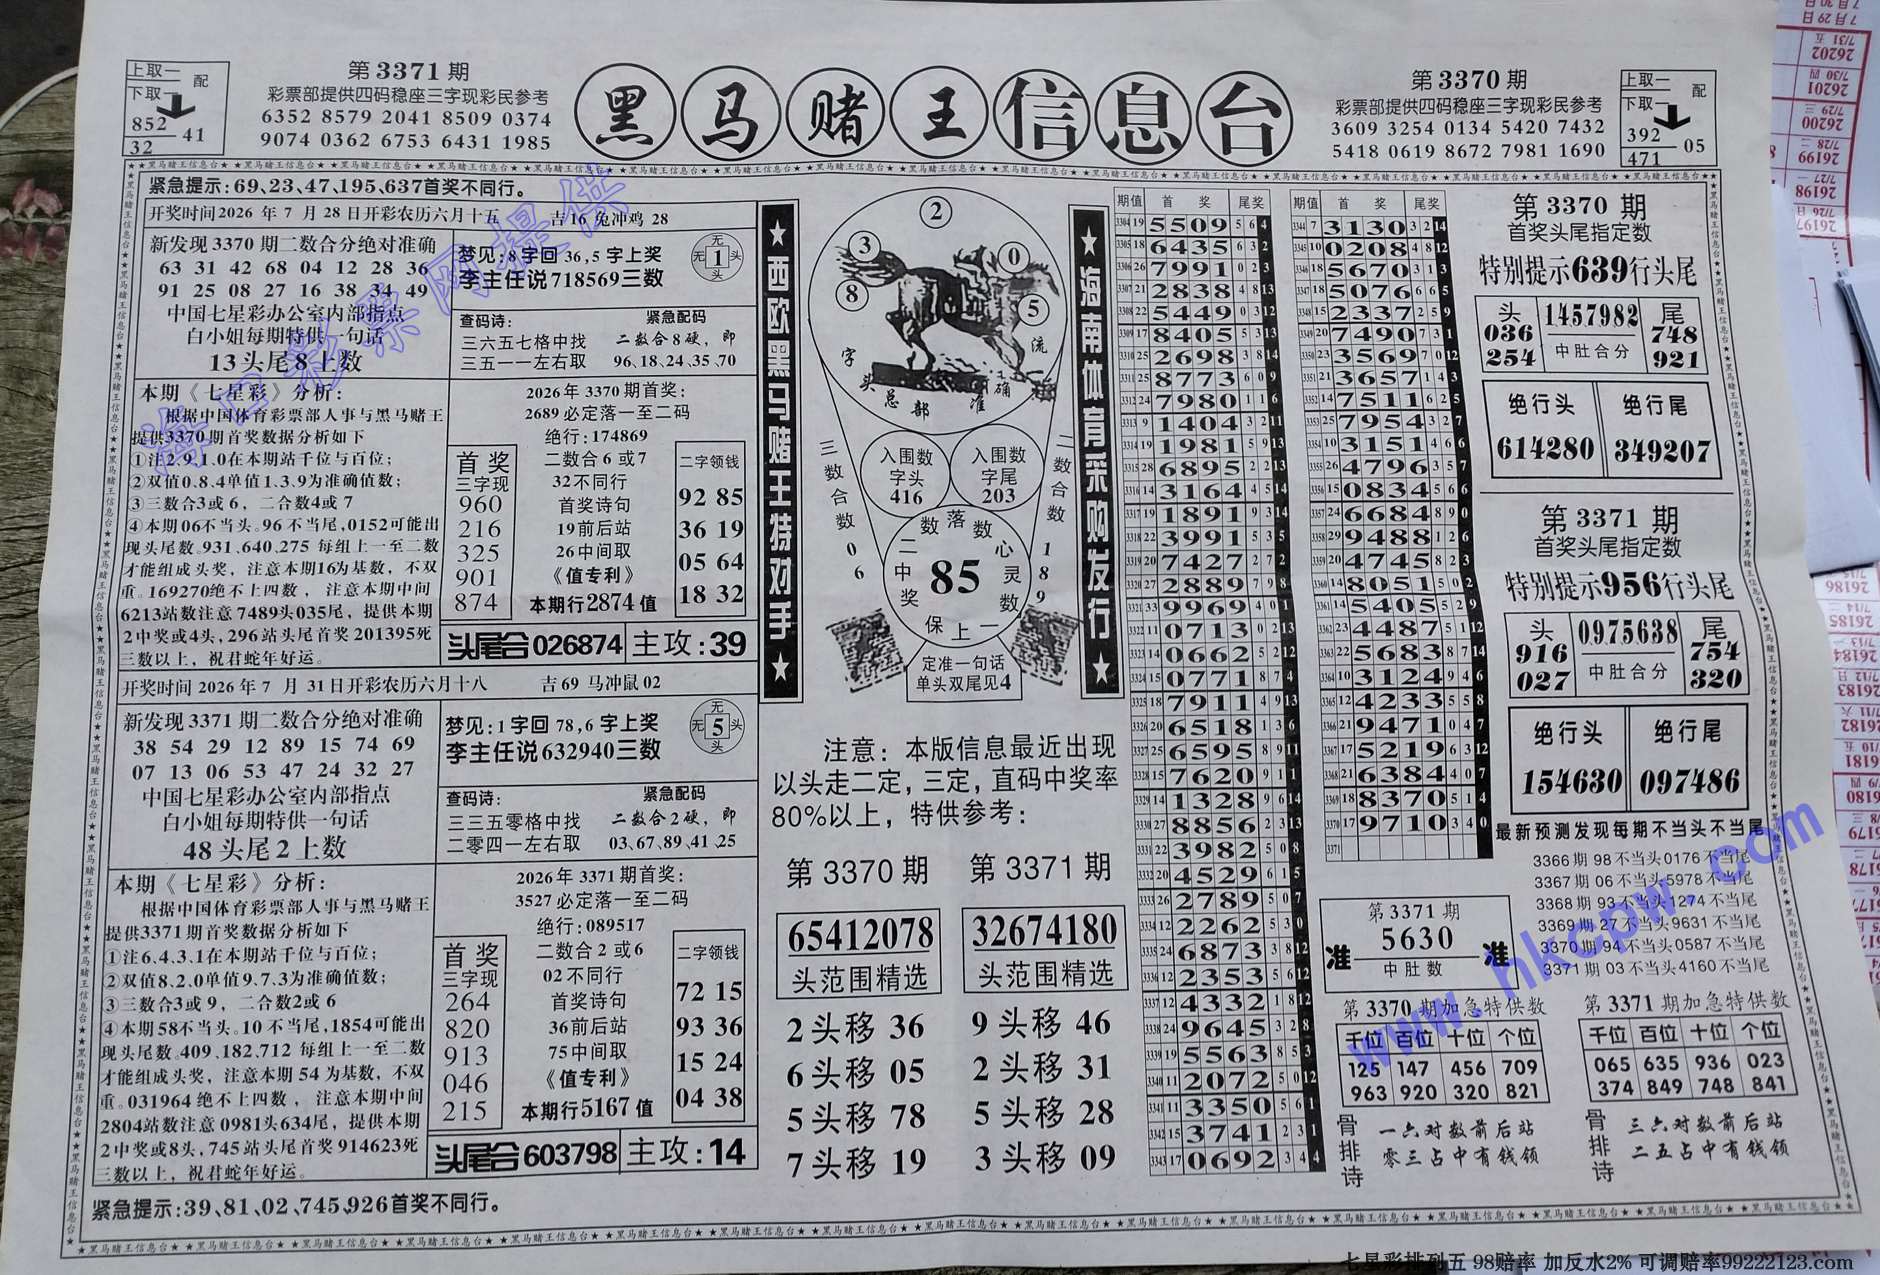 第3371期
彩票部提供四码稳座三字现彩民参考
6352 8579 2041 8509 0374
9074 0362 6753 6431 1985
上取一
下取一
配
852
32
41
黑马赌王信息台
第3370期
彩票部提供四码稳座三字现彩民参考
3609 3254 0134 5420 7432
5418 0619 8672 7981 1690
上取一
下取一
配
392
471
05
紧急提示:69、23、47、195、637首奖不同行。
开奖时间2026年7月28日开彩农历六月十五 吉16 兔冲鸡28
新发现3370期二数合分绝对准确
63 31 42 68 04 12 28 36
91 25 08 27 16 38 34 49
中国七星彩办公室内部指点
白小姐每期特供一句话
13头尾8上数
梦见:8字回36,5字上奖
李主任说718569三数
无
无1头
头
查码诗:
三六五七格中找
三五一一左右取
紧急配码
二数合8硬,即
96、18、24、35、70
本期《七星彩》分析:
根据中国体育彩票部人事与黑马赌王
提供3370期首奖数据分析如下
①注2.9.1.0在本期站千位与百位;
②双值0.8.4单值1.3.9为准确值数;
③三数合3或6,二合数4或7
④本期06不当头。96不当尾,0152可能出
现头尾数。931、640、275 每组上一至二数
才能组成头奖,注意本期16为基数,不双
重。169270绝不上四数,注意本期中间
6213站数注意7489头035尾,提供本期
2中奖或4头,296站头尾首奖201395死
三数以上,祝君蛇年好运。
2026年3370期首奖:
2689必定落一至二码
绝行:174869
二数合6或7
32不同行
首奖诗句
19前后站
26中间取
《值专利》
本期行2874值
首奖
三字现
960
216
325
901
874
二字领钱
92 85
36 19
05 64
18 32
头尾合026874
主攻:39
开奖时间2026年7月31日开彩农历六月十八 吉69 马冲鼠02
新发现3371期二数合分绝对准确
38 54 29 12 89 15 74 69
07 13 06 53 47 24 32 27
中国七星彩办公室内部指点
白小姐每期特供一句话
48头尾2上数
梦见:1字回78,6字上奖
李主任说632940三数
无
无5头
头
查码诗:
三三五零格中找
二零四一左右取
紧急配码
二数合2硬,即
03、67、89、41、25
本期《七星彩》分析:
根据中国体育彩票部人事与黑马赌王
提供3371期首奖数据分析如下
①注6.4.3.1在本期站千位与百位;
②双值8.2.0单值9.7.3为准确值数;
③三数合3或9,二合数2或6
④本期58不当头。10不当尾,1854可能出
现头尾数。409、182、712 每组上一至二数
才能组成头奖,注意本期54为基数,不双
重。031964绝不上四数,注意本期中间
2804站数注意0981头634尾,提供本期
2中奖或8头,745站头尾首奖914623死
三数以上,祝君蛇年好运。
2026年3371期首奖:
3527必定落一至二码
绝行:089517
二数合2或6
02不同行
首奖诗句
36前后站
75中间取
《值专利》
本期行5167值
首奖
三字现
264
820
913
046
215
二字领钱
72 15
93 36
15 24
04 38
头尾合603798
主攻:14
紧急提示:39、81、02、745、926首奖不同行。
★西欧黑马赌王特对手★
2
3
0
8
5
字头总部准确一流
入围数
字头
416
入围数
字尾
203
三数合数06
二数合数189
数落数
二中奖
85
心灵数
保上一
定准一句话
单头双尾见4
★海南体育采购发行★
注意:本版信息最近出现
以头走二定,三定,直码中奖率
80%以上,特供参考:
第3370期
65412078
头范围精选
2头移36
6头移05
5头移78
7头移19
第3371期
32674180
头范围精选
9头移46
2头移31
5头移28
3头移09
期值 首奖 尾奖
3304 19 5509 5 6 4
3305 18 6435 6 3 2
3306 26 7991 0 2 3
3307 21 2838 4 8 13
3308 22 5449 0 3 12
3309 17 8405 5 3 13
3310 25 2698 3 8 14
3311 25 8773 6 0 9
3312 24 7980 1 1 6
3313 9 1404 3 2 11
3314 19 1981 5 9 13
3315 28 6895 2 2 13
3316 14 3164 4 5 14
3317 19 1891 9 3 14
3318 22 3991 5 3 5
3319 20 7427 2 7 2
3320 27 2889 7 9 8
3321 33 9969 4 0 1
3322 11 0713 0 2 13
3323 14 0662 5 2 12
3324 15 0771 8 7 4
3325 18 7911 4 9 13
3326 20 6518 1 3 6
3327 25 6595 8 9 11
3328 15 7620 9 1 1
3329 14 1328 9 6 14
3330 27 8856 2 3 13
3331 22 3982 5 0 8
3332 20 4529 6 1 5
3333 26 2789 5 0 7
3334 12 2262 5 3 0
3335 24 6873 3 8 12
3336 12 2353 5 6 12
3337 12 4332 1 8 12
3338 24 9645 3 2 8
3339 19 5563 8 5 3
3340 11 2072 5 0 12
3341 11 3350 5 6 1
3342 15 3741 2 3 1
3343 17 0692 3 4 4
期值 首奖 尾奖
3344 7 3130 3 2 14
3345 10 0208 4 8 12
3346 18 5670 3 1 3
3347 18 5076 6 6 5
3348 15 2337 2 5 9
3349 20 7490 7 3 1
3350 23 3569 7 0 12
3351 21 3657 1 4 3
3352 14 7511 6 2 5
3353 25 7954 3 2 7
3354 10 3151 4 6 6
3355 26 4796 3 5 7
3356 15 0834 5 6 6
3357 24 6684 8 9 0
3358 29 9488 1 2 6
3359 20 4745 8 2 3
3360 14 8051 5 0 2
3361 14 5405 5 2 9
3362 23 4487 5 1 12
3363 22 5683 8 7 14
3364 10 3124 9 4 6
3365 12 4233 5 5 8
3366 21 9471 0 4 7
3367 17 5219 6 3 12
3368 21 6384 4 0 7
3369 18 8370 5 1 4
3370 17 9710 3 4 0
3371
第3370期
首奖头尾指定数
特别提示639行头尾
头
036
254
1457982
中肚合分
尾
748
921
绝行头
614280
绝行尾
349207
第3371期
首奖头尾指定数
特别提示956行头尾
头
916
027
0975638
中肚合分
尾
754
320
绝行头
154630
绝行尾
097486
最新预测发现每期不当头不当尾
3366期98不当头0176不当尾
3367期06不当头5978不当尾
3368期93不当头1274不当尾
3369期27不当头9631不当尾
3370期94不当头0587不当尾
3371期03不当头4160不当尾
第3371期
准 5630 准
中肚数
第3370期加急特供数
千位 百位 十位 个位
125 147 456 709
963 920 320 821
骨排诗
一六对数前后站
零三占中有钱领
第3371期加急特供数
千位 百位 十位 个位
065 635 936 023
374 849 748 841
骨排诗
三六对数前后站
二五占中有钱领
海口彩票网提供
www.hkcpw.com
七星彩排列五 98赔率 加反水2% 可调赔率99222123.com